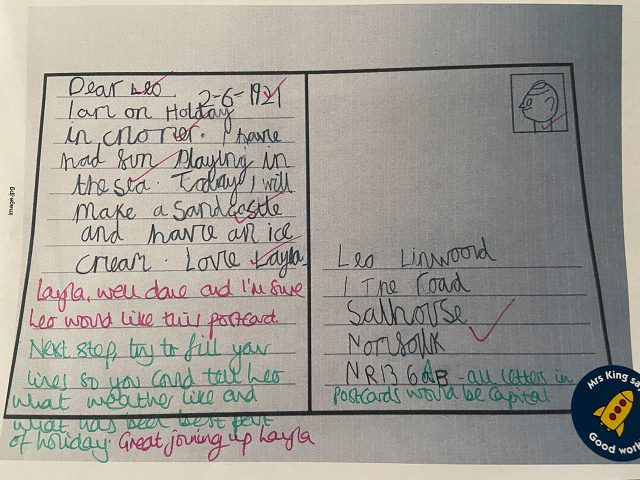 Dear Leo
2-6-1921
I am on Holiday
in cromer. I have
had fun Playing in
the sea. Today I will
make a Sandcastle
and have an ice
cream. Love Layla
Layla, well done and I'm sure
Leo would like this postcard.
Next step, try to fill your
lines so you could tell Leo
what weather like and
what has been best part
of holiday. Great joining up Layla
Leo Linwood
1 The road
Salhouse
Norfolk
NR13 6AB - all letters in
postcards would be capital.
Mrs King sa
Good work
image.jpg